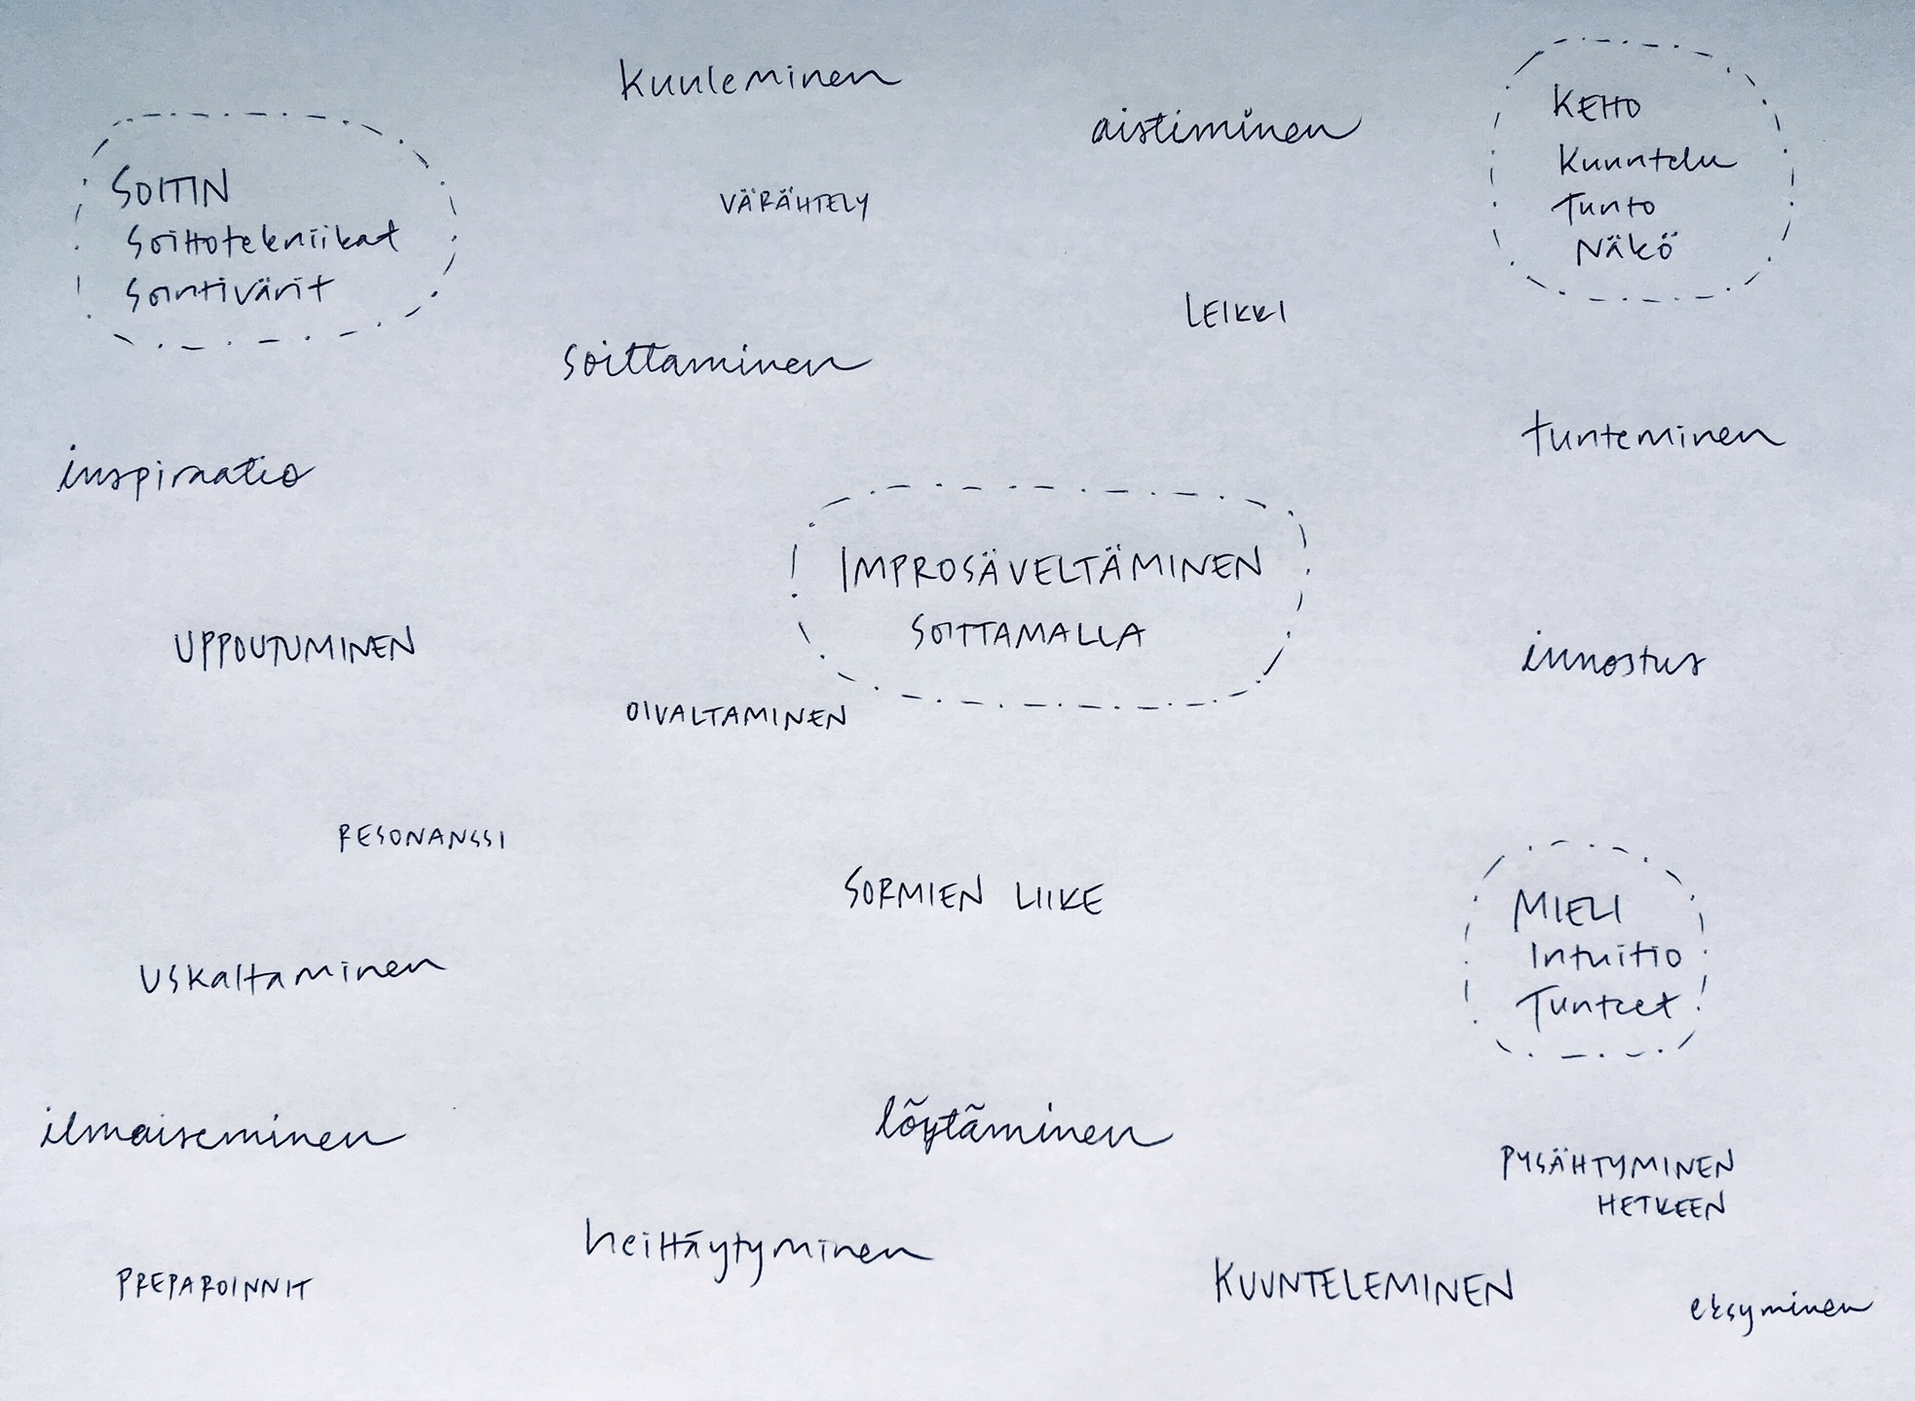 Kuuleminen
aistiminen
KEHO
Kuuntelu
Tunto
Näkö
SOITIN
Soittotekniikat
Sointivärit
VÄRÄHTELY
LEIKKI
soittaminen
tunteminen
inspiraatio
IMPROSÄVELTÄMINEN
SOITTAMALLA
UPPOUTUMINEN
innostus
OIVALTAMINEN
RESONANSSI
SORMIEN LIIKE
MIELI
Intuitio
Tunteet
Uskaltaminen
ilmaiseminen
löytäminen
PYSÄHTYMINEN
HETKEEN
heittäytyminen
PREPAROINNIT
KUUNTELEMINEN
eksyminen